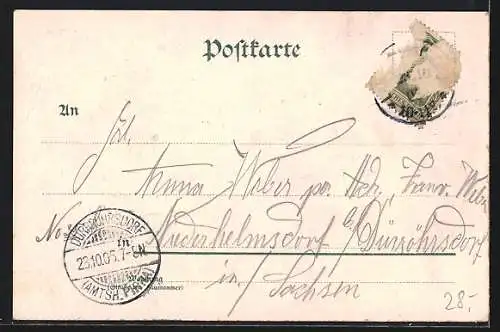 Postkarte
An
Frl.
Anna Weber per Adr. Frau Weber
No
in
Niederhelmsdorf b/ Dürröhrsdorf
in/ Sachsen
DÜRRRÖHRSDORF
23.10.05. 7-8N.
(AMTSH. PIRNA)
Wohnung
(Straße und Hausnummer)
28.-